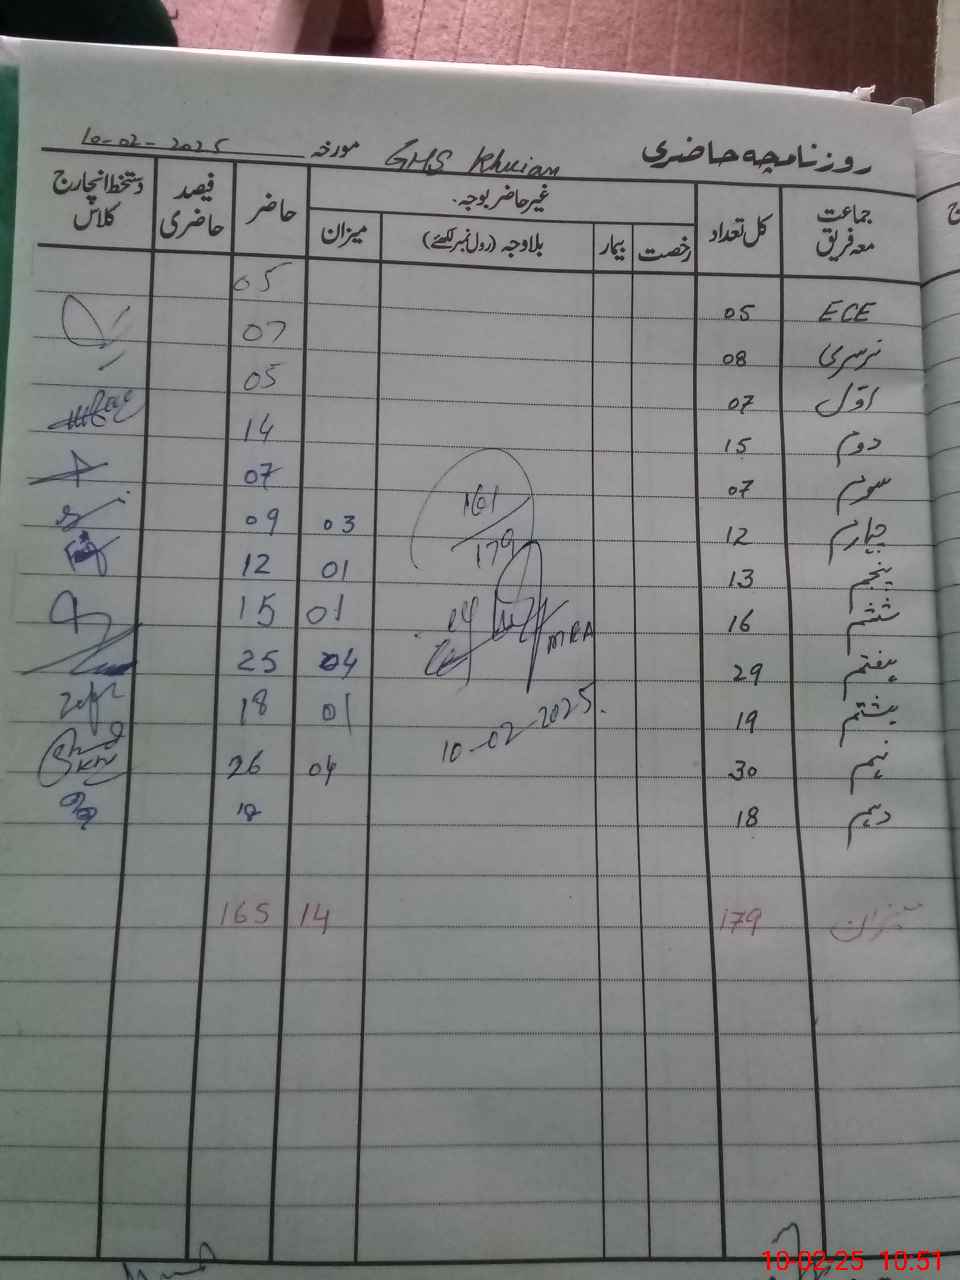 روزنامچہ حاضری GHS Khuian مورخہ 10-02-2025
جماعت معہ فریق کل تعداد غیر حاضر بوجہ۔ حاضر فیصد حاضری دستخط انچارج کلاس
رخصت بیمار بلاوجہ (رول نمبر لکھئے) میزان
ECE 05 05
نرسری 08 07
اوّل 07 05
دوم 15 14
سوم 07 07
چہارم 12 03 09
پنجم 13 01 12
ششم 16 01 15
ہفتم 29 04 25
ہشتم 19 01 18
نہم 30 04 26
دہم 18 18
میزان 179 14 165
161
179
MEA
10-02-2025
10-02-25 10:51